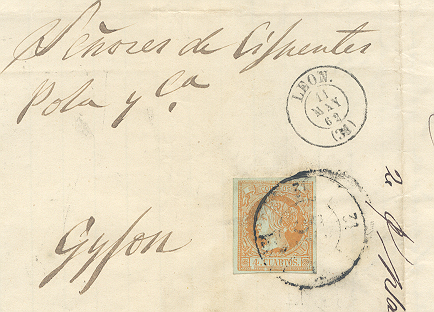 Señores de Cifuentes
Pola y Cª
LEON.
11
MAY
62
(31)
Gyjon
CUARTOS.
31